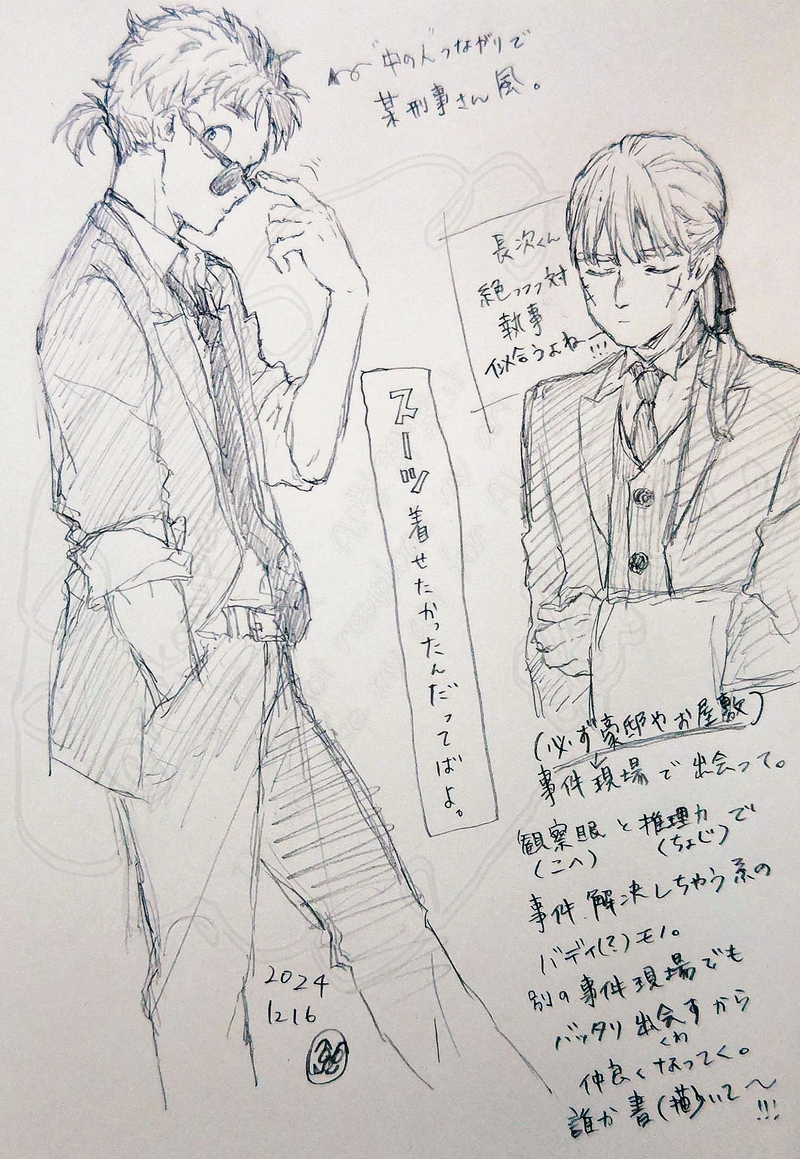 "中の人"つながりで
某刑事さん風。
長次くん
絶っっっ対
執事
似合うよねー!!!
スーツ着せたかったんだってばよ。
(必ず豪邸やお屋敷)
事件現場で出会って。
観察眼と推理力で
(こへ) (ちょじ)
事件解決しちゃう系の
バディ(?)モノ。
別の事件現場でも
バッタリ出会すから
くわ
仲良くなってく。
誰か書(描)いて〜!!!
2024
1216